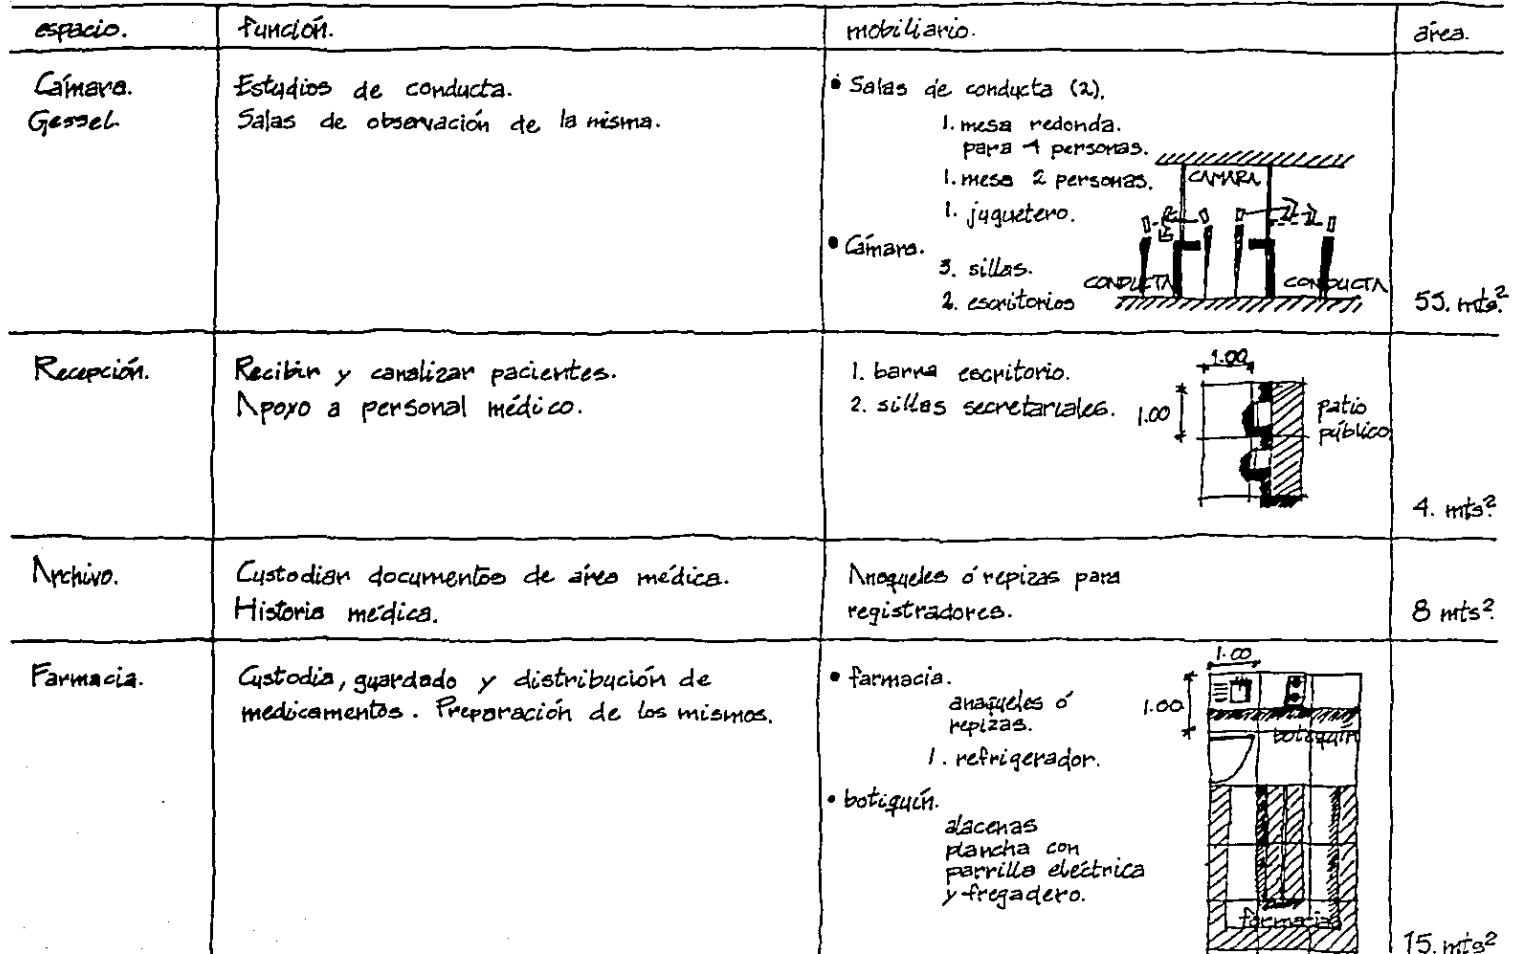 espacio.
función.
mobiliario.
área.
Cámara.
Gessel.
Estudios de conducta.
Salas de observación de la misma.
• Salas de conducta (2).
1. mesa redonda.
para 4 personas.
1. mesa 2 personas.
1. juguetero.
• Cámara.
3. sillas.
2. escritorios
CAMARA
CONDUCTA
CONDUCTA
55. mts.²
Recepción.
Recibir y canalizar pacientes.
Apoyo a personal médico.
1. barra escritorio.
2. sillas secretariales.
1.00
1.00
patio
público
4. mts.²
Archivo.
Custodiar documentos de área médica.
Historia médica.
Anaqueles ó repizas para
registradores.
8 mts.²
Farmacia.
Custodia, guardado y distribución de
medicamentos. Preparación de los mismos.
• farmacia.
anaqueles ó
repizas.
1. refrigerador.
• botiquín.
alacenas
plancha con
parrilla eléctrica
y fregadero.
1.00
1.00
botiquín
farmacia
15. mts²